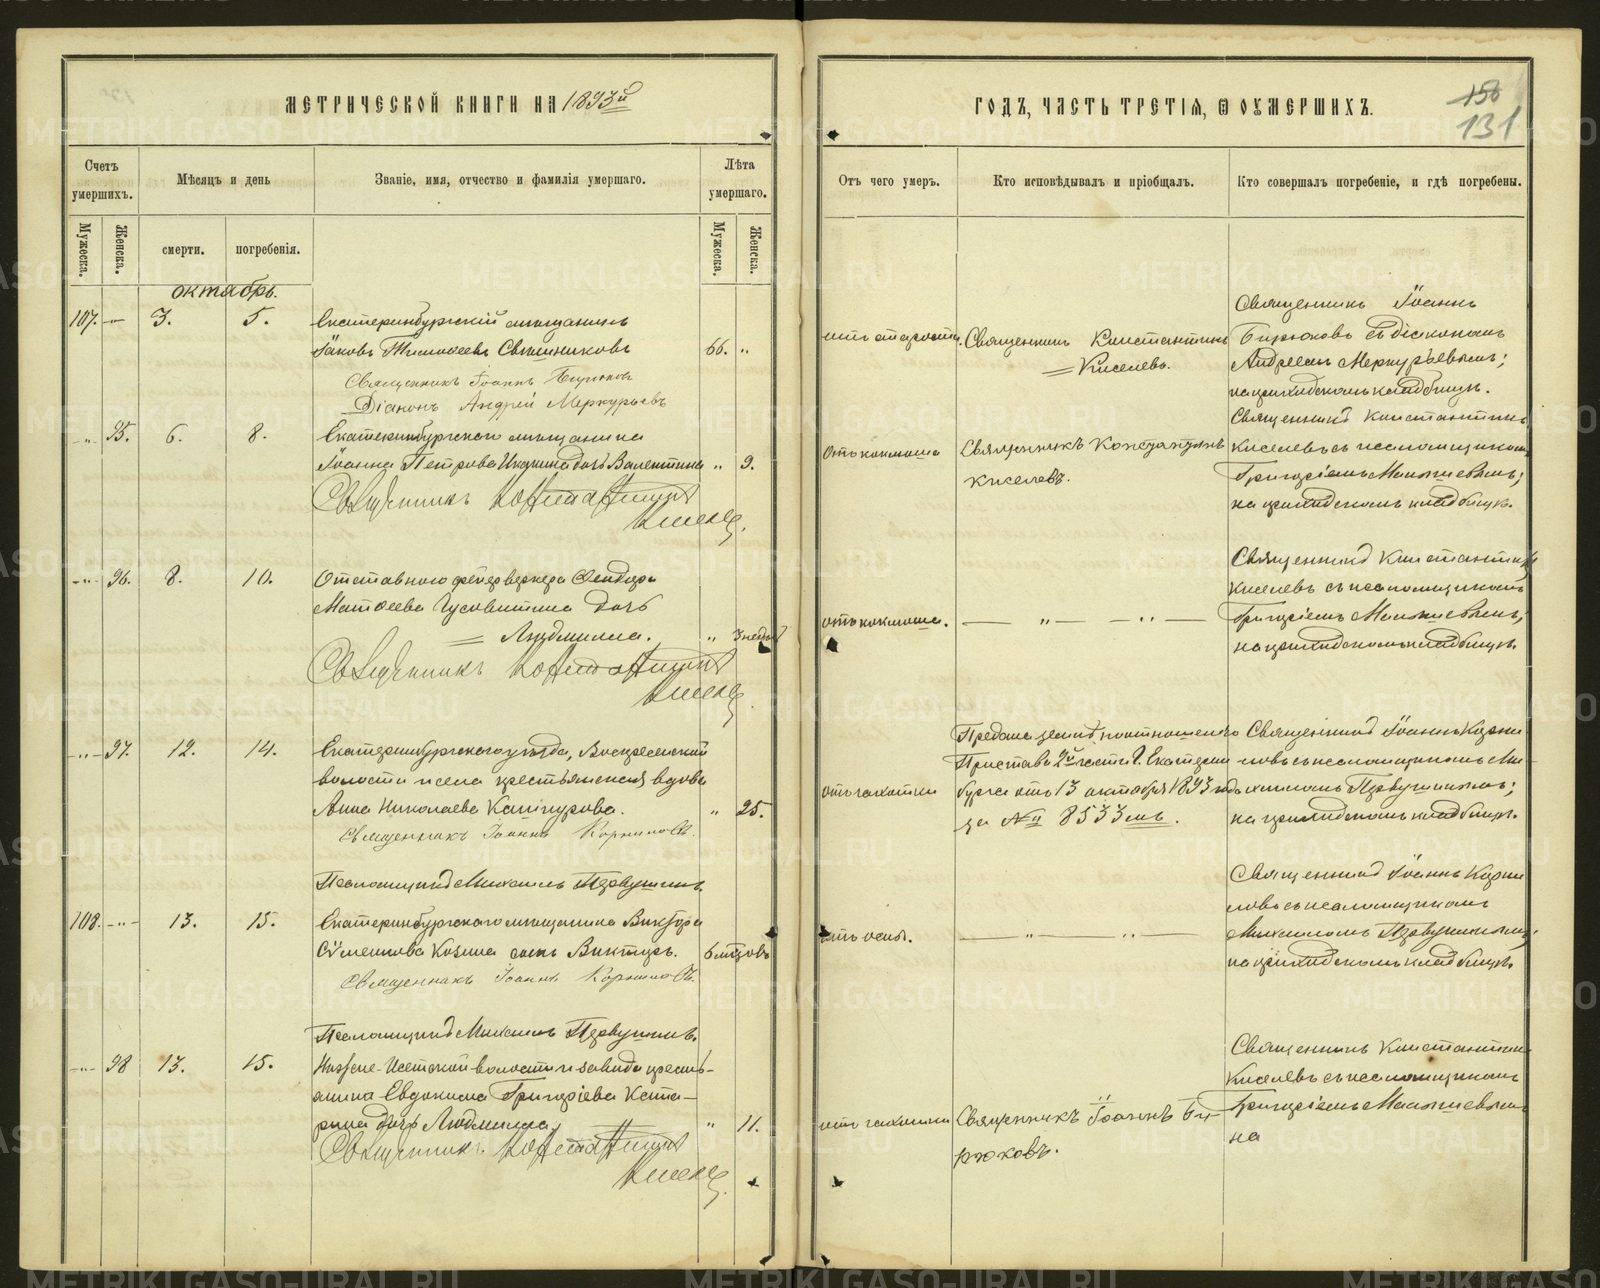 МЕТРИЧЕСКОЙ КНИГИ НА 1893й
ГОДЪ, ЧАСТЬ ТРЕТІЯ, Ѿ ОУМЕРШИХЪ.
150
131
Счетъ умершихъ.
Мужеска.
Женска.
Мѣсяцъ и день
смерти.
погребенія.
Званіе, имя, отчество и фамилія умершаго.
Лѣта умершаго.
Мужеска.
Женска.
Отъ чего умеръ.
Кто исповѣдывалъ и пріобщалъ.
Кто совершалъ погребеніе, и гдѣ погребены.
октябрь.
107. -„- 3. 5.
Екатеринбургскій мѣщанинъ
Іаковъ Тимоѳеевъ Свѣшниковъ 66. „
Священникъ Іоаннъ Бирюковъ
Діаконъ Андрей Меркурьевъ
отъ старости.
Священникъ Константинъ
Киселевъ.
Священникъ Іоаннъ
Бирюковъ съ діакономъ
Андреемъ Меркурьевымъ;
на приходскомъ кладбищѣ.
-„- 95. 6. 8.
Екатеринбургскаго мѣщанина
Іоанна Петрова дочь Валентина „ 9.
Священникъ Константинъ
Киселевъ.
отъ коклюша
Священникъ Константинъ
Киселевъ.
Священникъ Константинъ
Киселевъ съ псаломщикомъ
Григоріемъ
на приходскомъ кладбищѣ.
-„- 96. 8. 10.
Отставного фейерверкера Ѳеодора
Матѳеева дочь
Людмила. „ 3 нед.
Священникъ Константинъ
Киселевъ.
отъ коклюша. — „ — — „ —
Священникъ Константинъ
Киселевъ съ псаломщикомъ
Григоріемъ
на приходскомъ кладбищѣ.
-„- 97. 12. 14.
Екатеринбургскаго уѣзда, Воскресенской
волости и села крестьянская вдова
Анна Николаева „ 25.
Священникъ Іоаннъ Корниловъ.
Псаломщикъ Михаилъ Первушинъ.
отъ чахотки
Предана землѣ по отношенію
Пристава 2й части г. Екатерин
бурга отъ 13 октября 1893 года
за № 8533мъ.
Священникъ Іоаннъ Корни
ловъ съ псаломщикомъ Ми-
хаиломъ Первушинымъ;
на приходскомъ кладбищѣ.
108. -„- 13. 15.
Екатеринбургскаго мѣщанина Виктора
Сѵмеонова сынъ Викторъ. 6 мѣсцовъ
Священникъ Іоаннъ Корниловъ.
Псаломщикъ Михаилъ Первушинъ.
отъ оспы. — „ — „ —
Священникъ Іоаннъ Корни
ловъ съ псаломщикомъ
Михаиломъ Первушинымъ;
на приходскомъ кладбищѣ.
-„- 98 13. 15.
Нижне-Исетской волости и завода кресть-
янина Евдокима Григоріева
дочь Людмила „ 11.
Священникъ Константинъ
Киселевъ.
отъ чахотки
Священникъ Іоаннъ Би-
рюковъ.
Священникъ Константинъ
Киселевъ съ псаломщикомъ
Григоріемъ
на